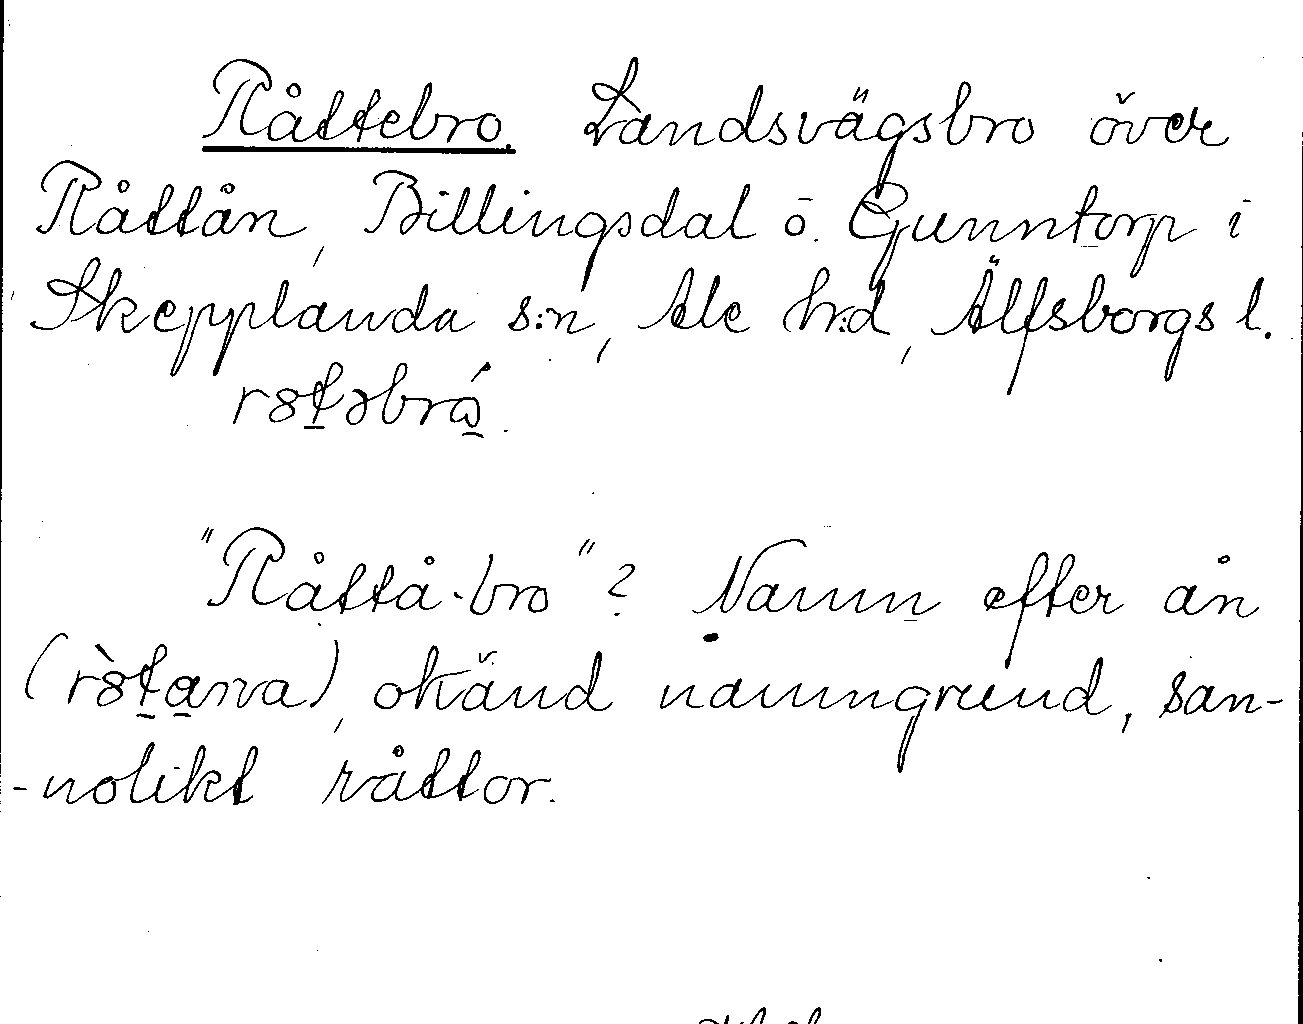 Råttebro. Landsvägsbro över
Råttån, Billingsdal o. Gunntorp i
Skepplanda s:n, Ale h:d, Älfsborgs l.
r8təbrǻ.
"Råttå-bro"? Namn efter ån
(r8̀tanva), okänd namngrund, san-
-nolikt råttor.